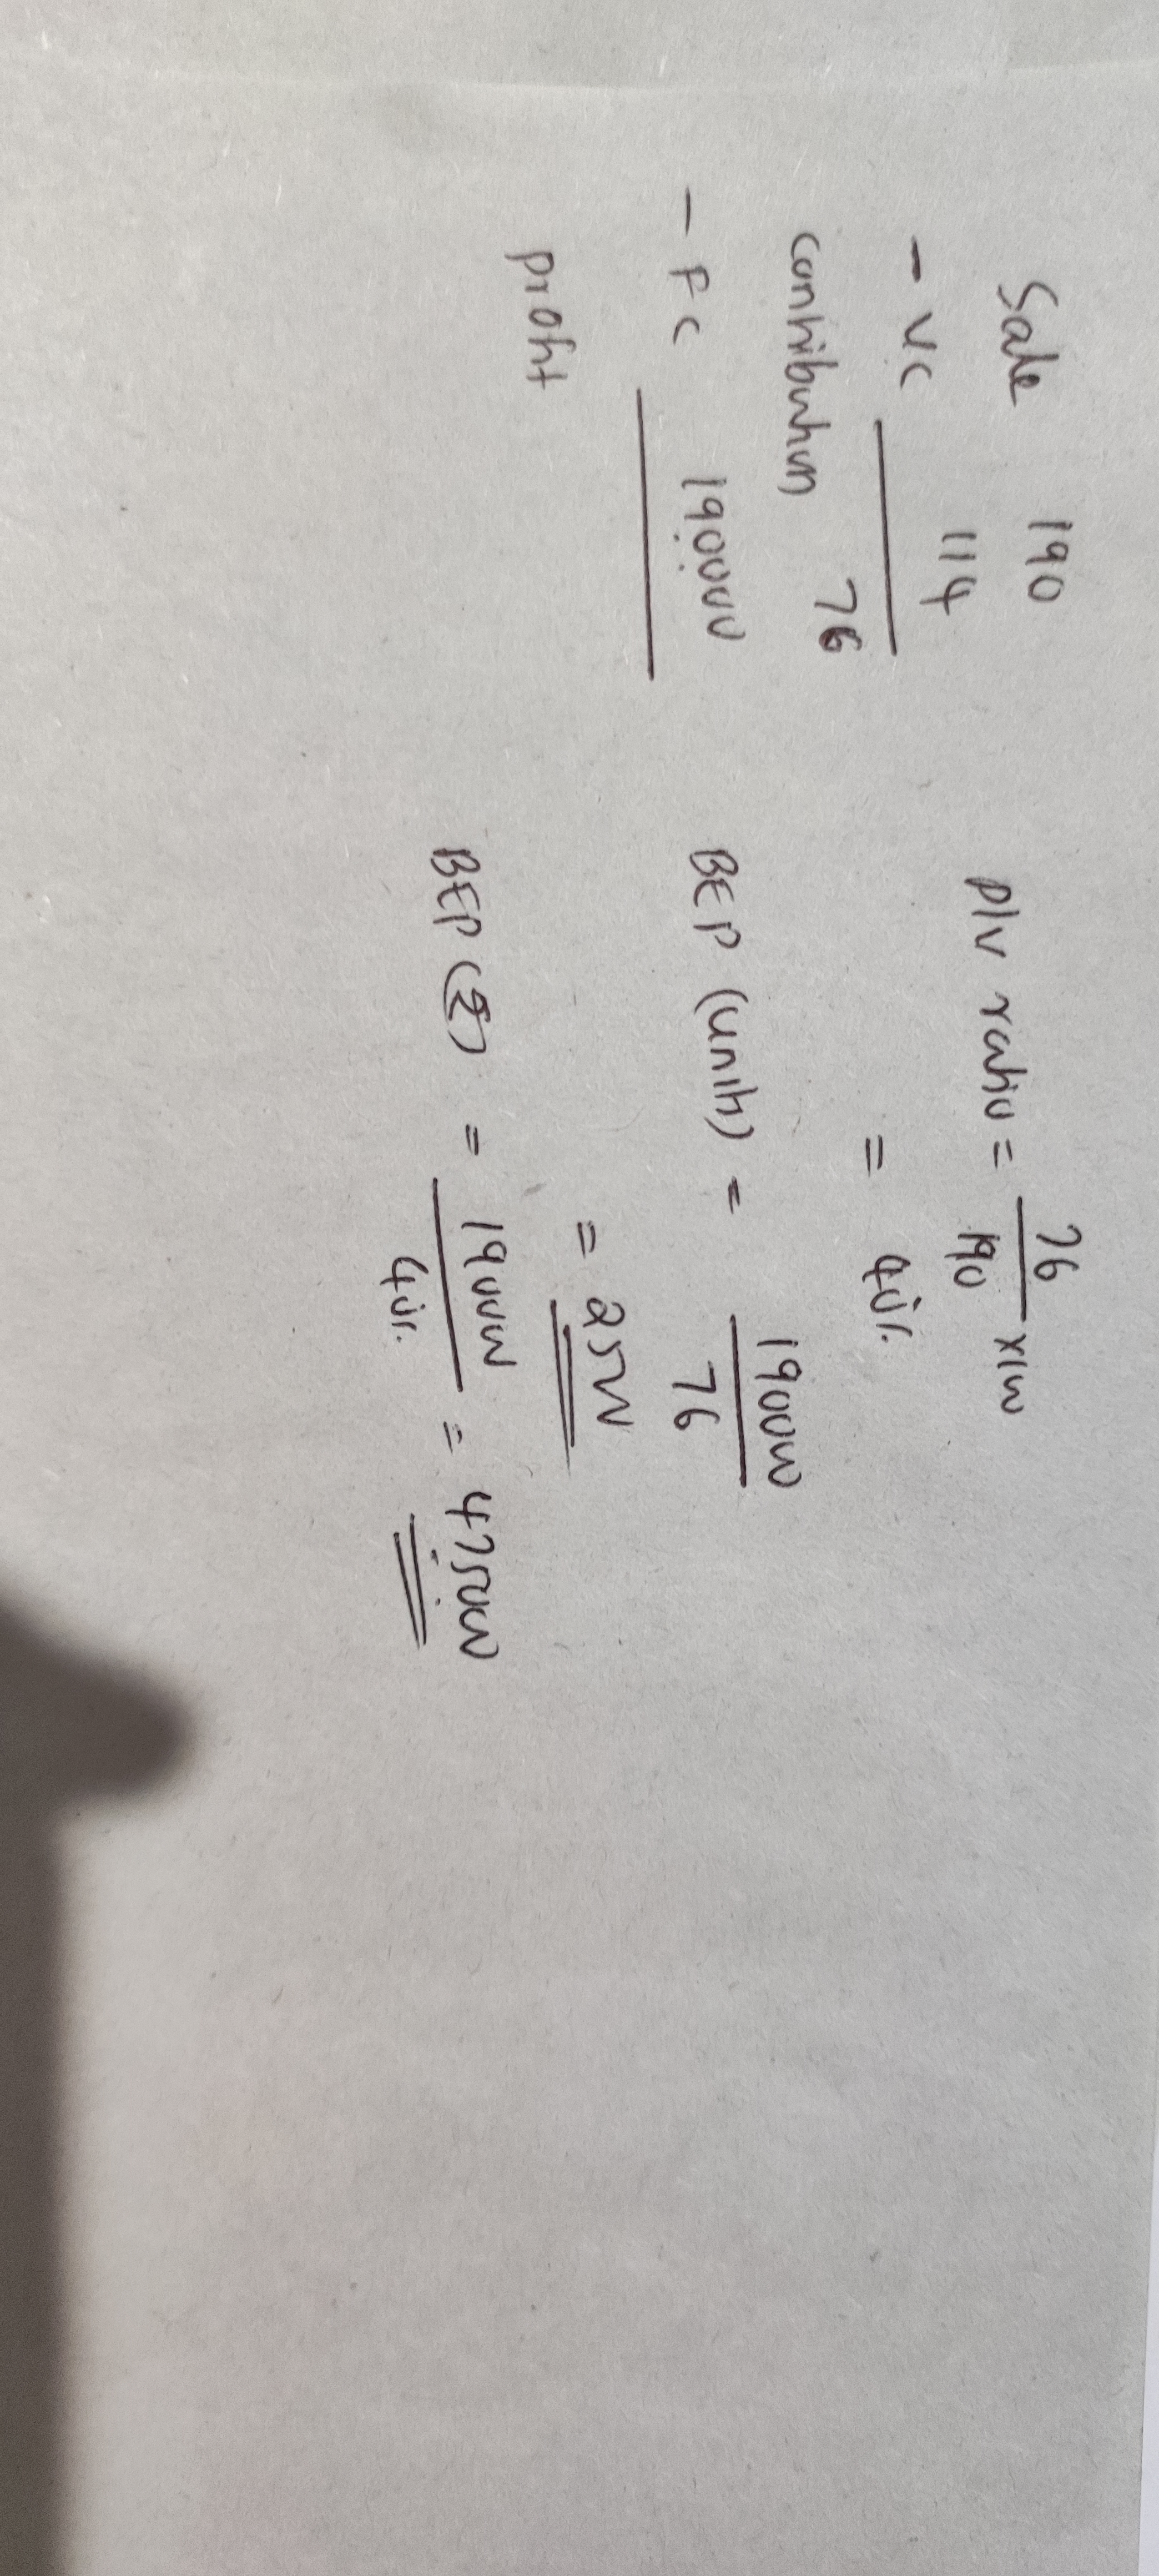 Sale 190
- VC 114
Contribution 76
- FC 190000
Profit
P/V ratio = 76/190 x100
= 40%
BEP (units) = 190000/76
= 2500
BEP (₹) = 190000/40% = 475000